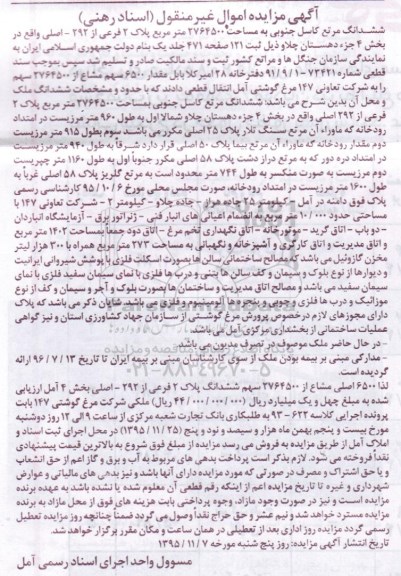 آگهی مزایده اموال غیرمنقول (اسناد رهنی)
ششدانگ مرتع کاسل جنوبی به مساحت ۲۷۶۴۵۰۰ متر مربع پلاک ۲ فرعی از ۲۹۲ - اصلی واقع در
بخش ۴ جزء دهستان چلاو ذیل ثبت ۱۲۱ صفحه ۴۷۱ جلد یک بنام دولت جمهوری اسلامی ایران به
نمایندگی سازمان جنگل ها و مراتع کشور ثبت و سند مالکیت صادر و تسلیم شد سپس بموجب سند
قطعی شماره ۷۳۴۲۱ - ۹۱/۹/۱ دفترخانه ۲۸ امیرکلا بابل مقدار ۶۵۰۰ سهم مشاع از ۲۷۶۴۵۰۰ سهم
را به شرکت تعاونی ۱۴۷ مرغ گوشتی آمل انتقال قطعی دادند که با حدود و مشخصات ششدانگ ملک
و محل آن بدین شرح می باشد: ششدانگ مرتع کاسل جنوبی بمساحت ۲۷۶۴۵۰۰ متر مربع پلاک ۲
فرعی از ۲۹۲ اصلی واقع در بخش ۴ جزء دهستان چلاو شمالا اول به طول ۹۶۰ متر مرزیست در امتداد
رودخانه که ماوراء آن مرتع سنگ تلار پلاک ۲۵ اصلی مکرر می باشد سوم بطول ۹۱۵ متر مرزیست
دوم مقدار رودخانه که ماوراء آن مرتع بیما پلاک ۵۰ اصلی قرار دارد شرقاً به طول ۹۴۰ متر مرزیست
در امتداد دره دور که به مرتع دراز دشت پلاک ۵۸ اصلی مکرر جنوباً اول به طول ۱۱۶۰ متر چپریست
دوم مرزیست به صورت منکسر به طول ۷۴۴ متر محدود است به مرتع گلریز پلاک ۵۸ اصلی غرباً به
طول ۱۶۰۰ متر مرزیست در امتداد رودخانه، صورت مجلس محلی مورخ ۹۵/۱۰/۶ کارشناسی رسمی
پلاک فوق دامنه در آمل - کیلومتر ۲۵ جاده هراز - جاده چلاو - کیلومتر ۲ - شرکت تعاونی ۱۴۷ با
مساحتی حدود ۱۰/۰۰۰ متر مربع به انضمام اعیانی های انبار فنی - ژنراتور برق - آزمایشگاه انبار دان
- دو باب - اتاق گرید - موتورخانه - اتاق نگهداری تخم مرغ - اتاق دود جمعاً بمساحت ۱۴۰۲ متر مربع
و اتاق مدیریت و اتاق کارگری و آشپزخانه و نگهبانی به مساحت ۲۷۳ متر مربع همراه با ۳۰۰ هزار لیتر
مخزن گازوئیل می باشد که مصالح ساختمانی سالن ها بصورت اسکلت فلزی با پوشش شیروانی ایرانیت
و دیوارها از نوع بلوک و سیمان و کف سالن ها بتنی و درب ها فلزی با نمای سیمان سفید فلزی با نمای
سیمان سفید می باشد و مصالح اتاق مدیریت و ساختمان ها بصورت بلوک و آجر و سیمان و کف از نوع
موزائیک و درب ها فلزی و چوبی و پنجره ها آلومینیوم و فلزی می باشد. شایان ذکر می باشد که پلاک
دارای مجوزهای لازم درخصوص پرورش مرغ گوشتی از سازمان جهاد کشاورزی استان و نیز گواهی
عملیات ساختمانی از بخشداری مرکزی آمل می باشد.
- در حال حاضر ملک موصوف در تصرف مدیون می باشد.
- مدارکی مبنی بر بیمه بودن ملک از سوی کارشناسان مبنی بر بیمه ایران تا تاریخ ۹۶/۷/۱۳ ارائه
گردیده است.
لذا ۶۵۰۰ اصلی مشاع از ۲۷۶۴۵۰۰ سهم ششدانگ پلاک ۲ فرعی از ۲۹۲ - اصلی بخش ۴ آمل ارزیابی
شده به مبلغ چهل و یک میلیارد ریال ملکی شرکت مرغ گوشتی ۱۴۷ بابت
پرونده اجرایی کلاسه ۶۲۲ - ۹۳ به طلبکاری بانک تجارت شعبه مرکزی از ساعت ۹ الی ۱۲ روز دوشنبه
مورخ بیست و پنجم بهمن ماه هزار و سیصد و نود و پنج (۱۳۹۵/۱۱/۲۵) در محل اجرای ثبت اسناد و
املاک آمل از طریق مزایده به فروش می رسد مزایده از مبلغ فوق شروع به بالاترین قیمت پیشنهادی
نقداً فروخته می شود. لازم بذکر است پرداخت بدهی های مربوط به آب و برق و گاز اعم از حق انشعاب
و یا حق اشتراک و مصرف در صورتی که مورد مزایده دارای آنها باشد و نیز بدهی های مالیاتی و عوارض
شهرداری و غیره تا تاریخ مزایده اعم از اینکه رقم قطعی آن معلوم شده یا نشده باشد به عهده برنده
مزایده است و نیز در صورت وجود مازاد، وجوه پرداختی بابت هزینه های فوق از محل مازاد به برنده
مزایده مسترد خواهد شد و نیم عشر و حق حراج نقداً وصول می گردد ضمناً چنانچه روز مزایده تعطیل
رسمی گردد مزایده روز اداری بعد از تعطیلی در همان ساعت و مکان مقرر برگزار خواهد شد.
تاریخ انتشار آگهی مزایده: روز پنج شنبه مورخه ۱۳۹۵/۱۱/۷
مسوول واحد اجرای اسناد رسمی آمل
۰۲۱-۸۸۳۴۹۶۷۰-۵